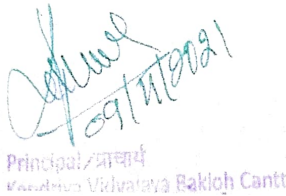 09/11/2021
Principal/प्राचार्य
Kendriya Vidyalaya Bakloh Cantt